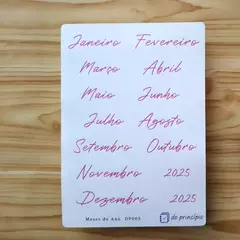 Janeiro Fevereiro
Março Abril
Maio Junho
Julho Agosto
Setembro Outubro
Novembro 2025
Dezembro 2025
Meses do Ano DP005
do princípio